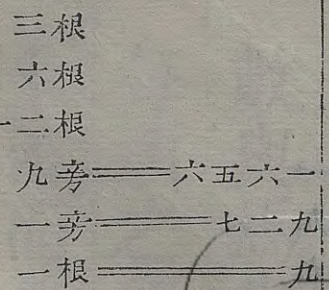 三根
六根
一二根
九旁══六五六一
一旁══七二九
一根══九